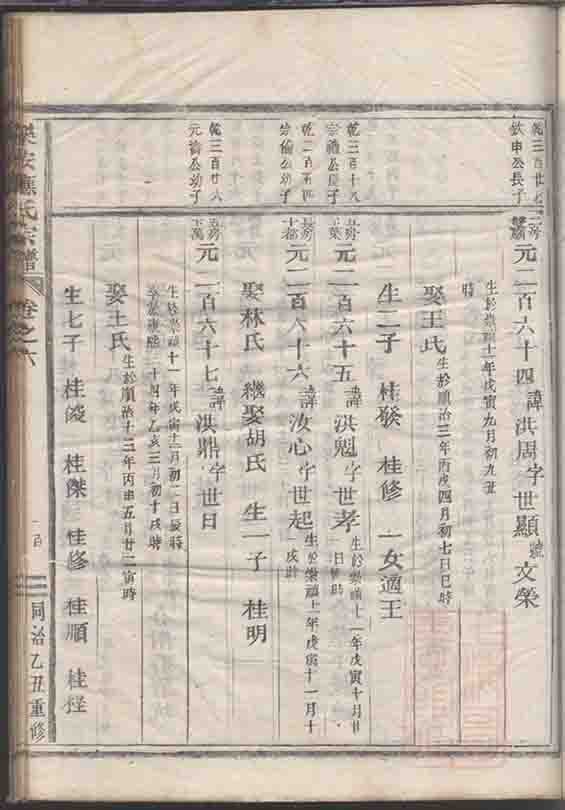 乾三百廿七
欽申公長子
元二百六十四諱洪周字世顯號文榮
生於崇禎十一年戊寅九月初九丑
時
娶王氏生於順治三年丙戌四月初七日巳時
生二子 桂發 桂修 一女適王
乾三百十八
宗禮公長子
元二百六十五諱洪魁字世孝生於崇禎十一年戊寅十月廿
日 時
宗倫公幼子
元二百六十六諱汝心字世起生於崇禎十一年戊寅十一月十
一戌時
娶林氏 繼娶胡氏 生一子 桂明
乾三百廿八
元 公幼子
元二百六十七諱洪鼎字世日
生於崇禎十一年戊寅十二月初二日辰時
卒於康熙三十四年乙亥三月初十戌時
娶王氏生於順治十三年丙申五月廿二寅時
生七子 桂 桂傑 桂修 桂順 桂
樂安 氏宗譜 卷之六
同治乙丑重修